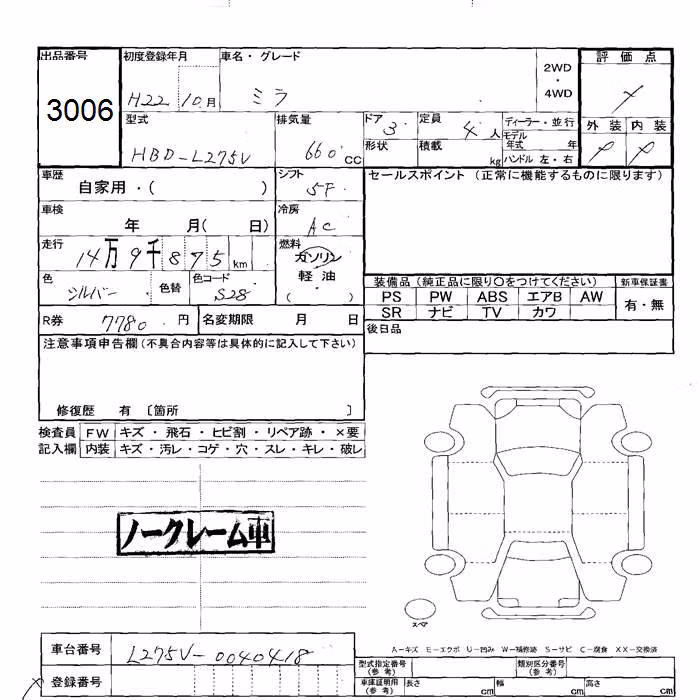 出品番号
3006
初度登録年月
H22 10月
車名・グレード
ミラ
2WD
・
4WD
評価点
外装 内装
型式
HBD-L275V
排気量
660 CC
ドア
3
形状
定員
4 人
積載
kg
ディーラー・並行
モデル
年式 年
ハンドル 左・右
車歴
自家用・( )
シフト
5F
セールスポイント (正常に機能するものに限ります)
車検
年 月( 日)
冷房
AC
走行
14万9千875km
燃料
ガソリン
軽油
( ・ )
色
シルバー
色替
色コード
S28
装備品 (純正品に限り〇をつけてください)
新車保証書
PS PW ABS エアB AW
SR ナビ TV カワ
有・無
R券 7780 円
名変期限 月 日
後日品
注意事項申告欄 (不具合内容等は具体的に記入して下さい)
修復歴 有 〔箇所 〕
検査員
記入欄
FW キズ・飛石・ヒビ割・リペア跡・×要
内装 キズ・汚レ・コゲ・穴・スレ・キレ・破レ
ノークレーム車
スペア
A-キズ E-エクボ U-凹み W-補修跡 S-サビ C-腐食 XX-交換済
車台番号
L275V-0040418
登録番号
型式指定番号
(参考)
類別区分番号
(参考)
車庫証明用
(参考)
長さ cm
幅 cm
高さ cm